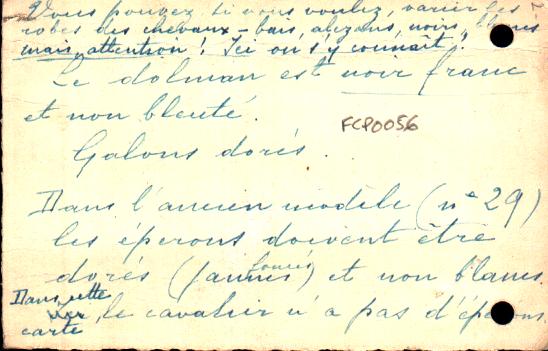 Vous pouvez si vous voulez, varier les
robes des chevaux - bais, alezans, noirs, blancs
mais attention! Ici on s'y connaît!
Le dolman est noir franc
et non bleuté.
FCP0056
Galons dorés.
Dans l'ancien modèle (n° 29)
les éperons doivent être
foncés
dorés (jaunes) et non blancs.
Dans cette
carte
, le cavalier n'a pas d'éperons.